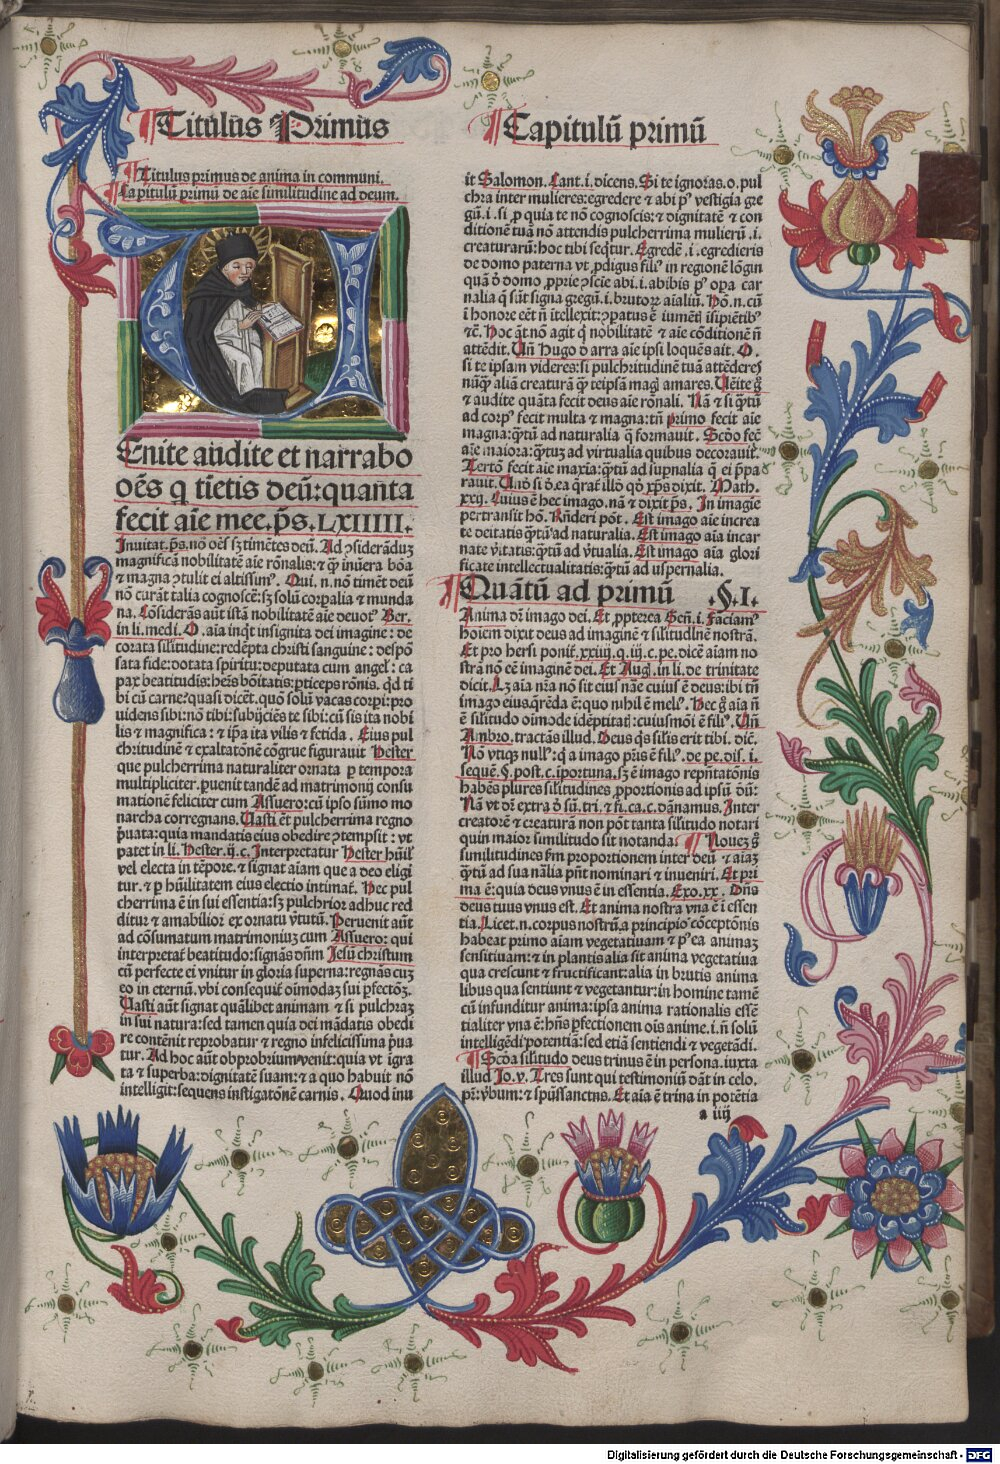 Titulus Primus
Capitulū primū
Titulus primus de anima in communi.
Capitulū primū de aīe similitudine ad deum.
Enite audite et narrabo
oēs q tīetis deū: quanta
fecit aīe mee. p̄s. LXIIIII.
Inuitat. p̄s. nō oēs sꝫ timētes deū. Ad ꝯsiderādūꝫ
magnificā nobilitatē aīe rōnalis: et q̄ inūera bōa
et magna ꝯtulit ei altissimꝰ. Qui. n. nō timēt deū
nō curāt talia cognoscē: sꝫ solū corꝑalia et munda
na. Cōsiderās aūt istā nobilitatē aīe deuotꝰ Ber.
in li. medi. O. aīa inq̄t insignita dei imagine: de
corata silitudine: redēpta christi sanguine: despō
sata fide: dotata spiritu: deputata cum angel: ca
pax beatitudīs: hēs bōitatis: ꝑticeps rōnis. qd ti
bi cū carne: quasi dicēt. quō solū vacas corpi: pro
uidens sibi: nō tibi: subijciēs te sibi: cū sis ita nobi
lis et magnifica: et ipā ita vilis et fetida. Eius pul
chritudinē et exaltatōnē cōgrue figurauit Hester
que pulcherrima naturaliter ornata ꝑ tempora
multipliciter. ꝑuenit tandē ad matrimonij consu
mationē feliciter cum Assuero: cū ipso sūmo mo
narcha corregnans. Uasti ēt pulcherrima regno
ꝓuata: quia mandatis eius obedire ꝯtempsit: vt
patet in li. Hester. ij. c. Interpretatur Hester hūil
vel electa in tēpore. et signat aīam que a deo eligi
tur. et ꝑ hūilitatem eius electio intimat. Hec pul
cherrima ē in sui essentia: sꝫ pulchrior adhuc red
ditur et amabilior ex ornatu v̄tutū. Peruenit aūt
ad cōsumatum matrimoniuꝫ cum Assuero: qui
interpretat beatitudo: signās dn̄m Jesū christum
cū perfecte ei vnitur in gloria superna: regnās cuꝫ
eo in eternū. vbi consequit oimodaꝫ sui ꝑfectōꝫ.
Uasti aūt signat quālibet animam et si pulchraꝫ
in sui natura: sed tamen quia dei mādatis obedi
re contēnit reprobatur et regno infelicissima ꝑua
tur. Ad hoc aūt obprobrium venit: quia vt igra
ta et superba: dignitatē suam: et a quo habuit nō
intelligit: sequens instigatōnē carnis. Quod inu
it Salomon. Cant. i. dicens. Si te ignoras. o. pul
chra inter mulieres: egredere et abi pꝰ vestigia gre
gū. i. si ꝑ quia te nō cognoscis: et dignitatē et con
ditionē tuā nō attendis pulcherrima mulierū. i.
creaturarū: hoc tibi seq̄tur. Egredē. i. egredieris
de domo paterna vt ꝓdigus filꝰ in regionē lōgin
quā ō domo ꝓprie ꝯscīe abi. i. abibis pꝰ oꝑa car
nalia q̄ sūt signa gregū. i. brutorꝝ aīaliū. Hō. n. cū
ī honore eēt nī itellexit: ꝯpatus ē iumētī īsipiētibꝰ
etc̄. Hoc aūt nō agit q̄ nobilitatē et aīe cōditionē nī
attēdit. Un̄ Hugo ō arra aīe ipsi loquēs ait. O.
si te ipsam videres: si pulchritudinē tuā attēderes
nūq̄ꝫ aliā creaturā q̄ꝫ teipsā magī amares. Uēite gͦ
et audite quāta fecit deus aīe rōnali. Nā et si q̄tū
ad corpꝰ fecit multa et magna: tn̄ primo fecit aīe
magna: q̄tū ad naturalia q̄ formauit. Scdo fec̄
aīe maiora: q̄tuꝫ ad virtualia quibus decorauit.
Tertō fecit aīe maxīa: q̄tū ad supnalia q̄ ei p̄pa
rauit. Math.
xxij. Cuius ē hec imago. nā et dixit p̄s. In imagīe
pertransit hō. Rn̄deri pōt. Est imago aīe increa
te deitatis q̄tū ad naturalia. Est imago aīa incar
nate v̄itatis: q̄tū ad v̄tualia. Est imago aīa glori
ficate intellectualitatis: q̄tū ad uspernalia.
Quātū ad primū .§.I.
Anima dr̄ imago dei. Et ꝓpterea Gen̄. i. Faciamꝰ
hoīem dixit deus ad imaginē et silitudīnē nostrā.
Et pro hersi ponit. xxiiij. q. iij. c. pe. dicē aīam no
strā nō eē imaginē dei. Et Aug. in li. de trinitate
dicit. Lꝫ aīa nr̄a nō sit eiusdē nāe cuius ē deus: ibi tn̄
imago eius. q̄rēda ē: quo nihil ē melꝰ. Hec gͦ aīa nī
ē silitudo oimode idēptitatī: cuiusmōi ē filꝰ. Un̄
Ambro. tractās illud. Deus q̄s silis erit tibi. dic̄.
Nō vtiqꝫ nullꝰ: q̄ a imago pr̄is ē filꝰ. de pe. dis. i.
sequē. §. post. c. īportuna. sꝫ ē imago repn̄tatōnis
habēs plures silitudines, ꝓportionis ad ipsū dūꝫ:
Nā vt dr̄ extra ō sū. tri. et fi. ca. c. dānamus. Inter
creatorē et creaturā non pōt tanta silitudo notari
quin maior similitudo sit notanda. Noueꝫ gͦ
similitudines fm̄ proportionem inter deū et aīaꝫ
q̄tū ad sua nālia pn̄t nominari et inueniri. Et pri
ma ē: quia deus vnus ē in essentia. Exo. xx. Dn̄s
deus tuus vnus est. Et anima nostra vna ē ī essen
tia. Licet. n. corpus nostrū. a principio cōceptōnis
habeat primo aīam vegetatiuam et pꝰ ea animaꝫ
sensitiuam: et in plantis alia sit anima vegetatiua
qua crescunt et fructificant: alia in brutis anima
libus qua sentiunt et vegetantur: in homine tamē
cū infunditur anima: ipsa anima rationalis essē
tialiter vna ē: hn̄s ꝑfectionem oīs anime. i. nī solū
intelligēdi potentia: sed etiā sentiendi et vegetādi.
Scda silitudo deus trinus ē in persona. iuxta
illud Jo. v. Tres sunt qui testimoniū dāt in celo.
pr̄: v̄bum: et spūssanctus. Et aīa ē trina in potētia
a iiij
Digitalisierung gefördert durch die Deutsche Forschungsgemeinschaft - DFG